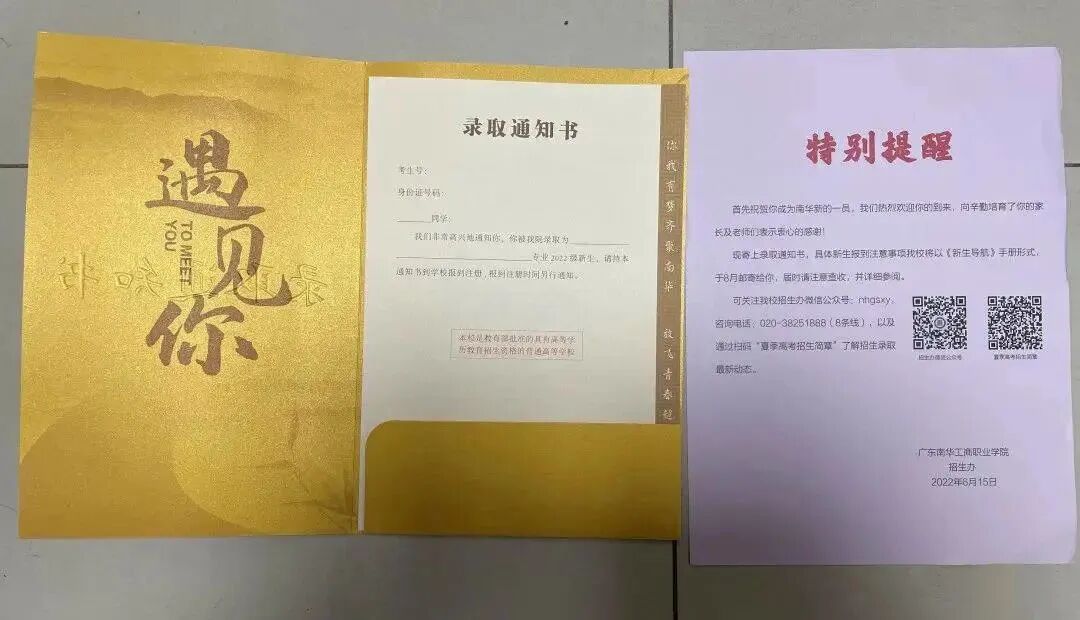 遇见你
TO MEET
YOU
录取通知书
考生号:
身份证号码:
______同学:
我们非常高兴地通知你,你被我院录取为______________
________________________专业2022级新生,请持本
通知书到学校报到注册,报到注册时间另行通知。
本校是教育部批准的具有高等学
历教育招生资格的普通高等学校
你我有梦齐聚南华 放飞青春
特别提醒
首先祝贺你成为南华新的一员,我们热烈欢迎你的到来,向辛勤培育了你的家
长及老师们表示衷心的感谢!
现寄上录取通知书,具体新生报到注意事项我校将以《新生导航》手册形式,
于8月邮寄给你,届时请注意查收,并详细参阅。
可关注我校招生办微信公众号:nhgsxy,
咨询电话:020-38251888(8条线),以及
通过扫码“夏季高考招生简章”了解招生录取
最新动态。
招生办微信公众号
夏季高考招生简章
广东南华工商职业学院
招生办
2022年6月15日